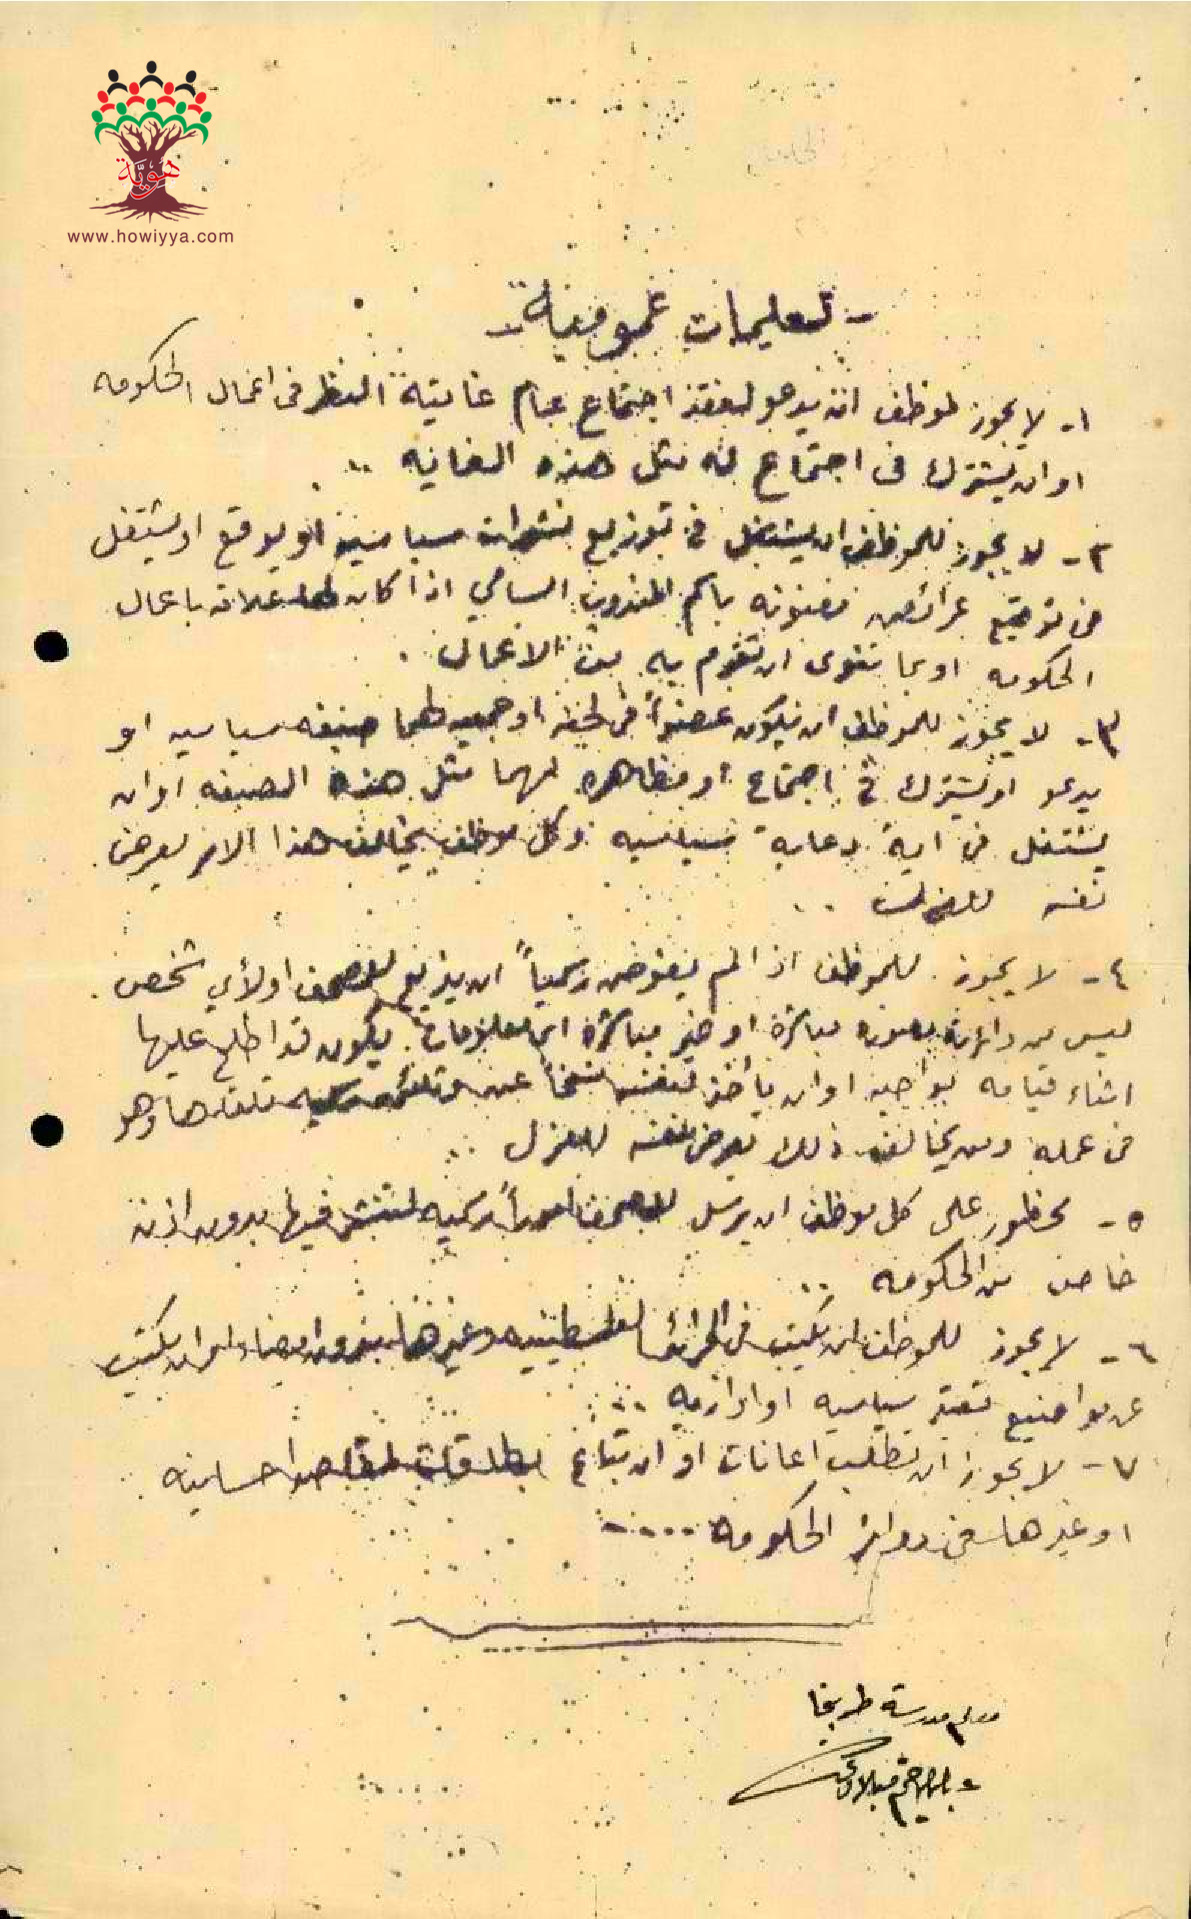 هوية
www.howiyya.com
- تعليمات عمومية -
١- لا يجوز لموظف ان يدعو لعقد اجتماع عام غايته النظر في اعمال الحكومه
او ان يشترك في اجتماع له مثل هذه الغايه ..
٢- لا يجوز للموظف ان يشتغل في توزيع نشرات سياسيه او يوقع او يشتغل
في توقيع عرائض معنونه باسم المندوب السامي اذا كان لها علاقه باعمال
الحكومه او بما تنوى ان تقوم به من الاعمال .
٣- لا يجوز للموظف ان يكون عضواً في لجنه او جمعيه لهما صبغه سياسيه او
يدعو او يشترك في اجتماع او مظاهره لهما مثل هذه الصبغه او ان
يشتغل في اية دعاية سياسيه وكل موظف يخالف هذا الامر يعرض
نفسه للعزل ..
٤- لا يجوز للموظف اذا لم يفوض رسمياً ان يذيع للصحف او لأي شخص
ليس من دائرته بصوره مباشرة او غير مباشرة اي معلومات يكون قد اطلع عليها
اثناء قيامه بواجبه او ان يأخذ لنفسه نسخاً عن وثائق رسميه تلقاها وهو
في عمله ومن يخالف ذلك يعرض نفسه للعزل ..
٥- محظور على كل موظف ان يرسل للصحف اموراً رسميه لتنشر فيها بدون اذن
خاص من الحكومه ..
٦- لا يجوز للموظف ان يكتب في الجرائد الفلسطينيه وغيرها بدون امضاء او ان يكتب
عن مواضيع سياسيه او اداريه ..
٧- لا يجوز ان تطلب اعانات او ان تباع بطاقات لمقاصد احسانيه
او غيرها في دوائر الحكومه ....
معلم مدرسة طربخا